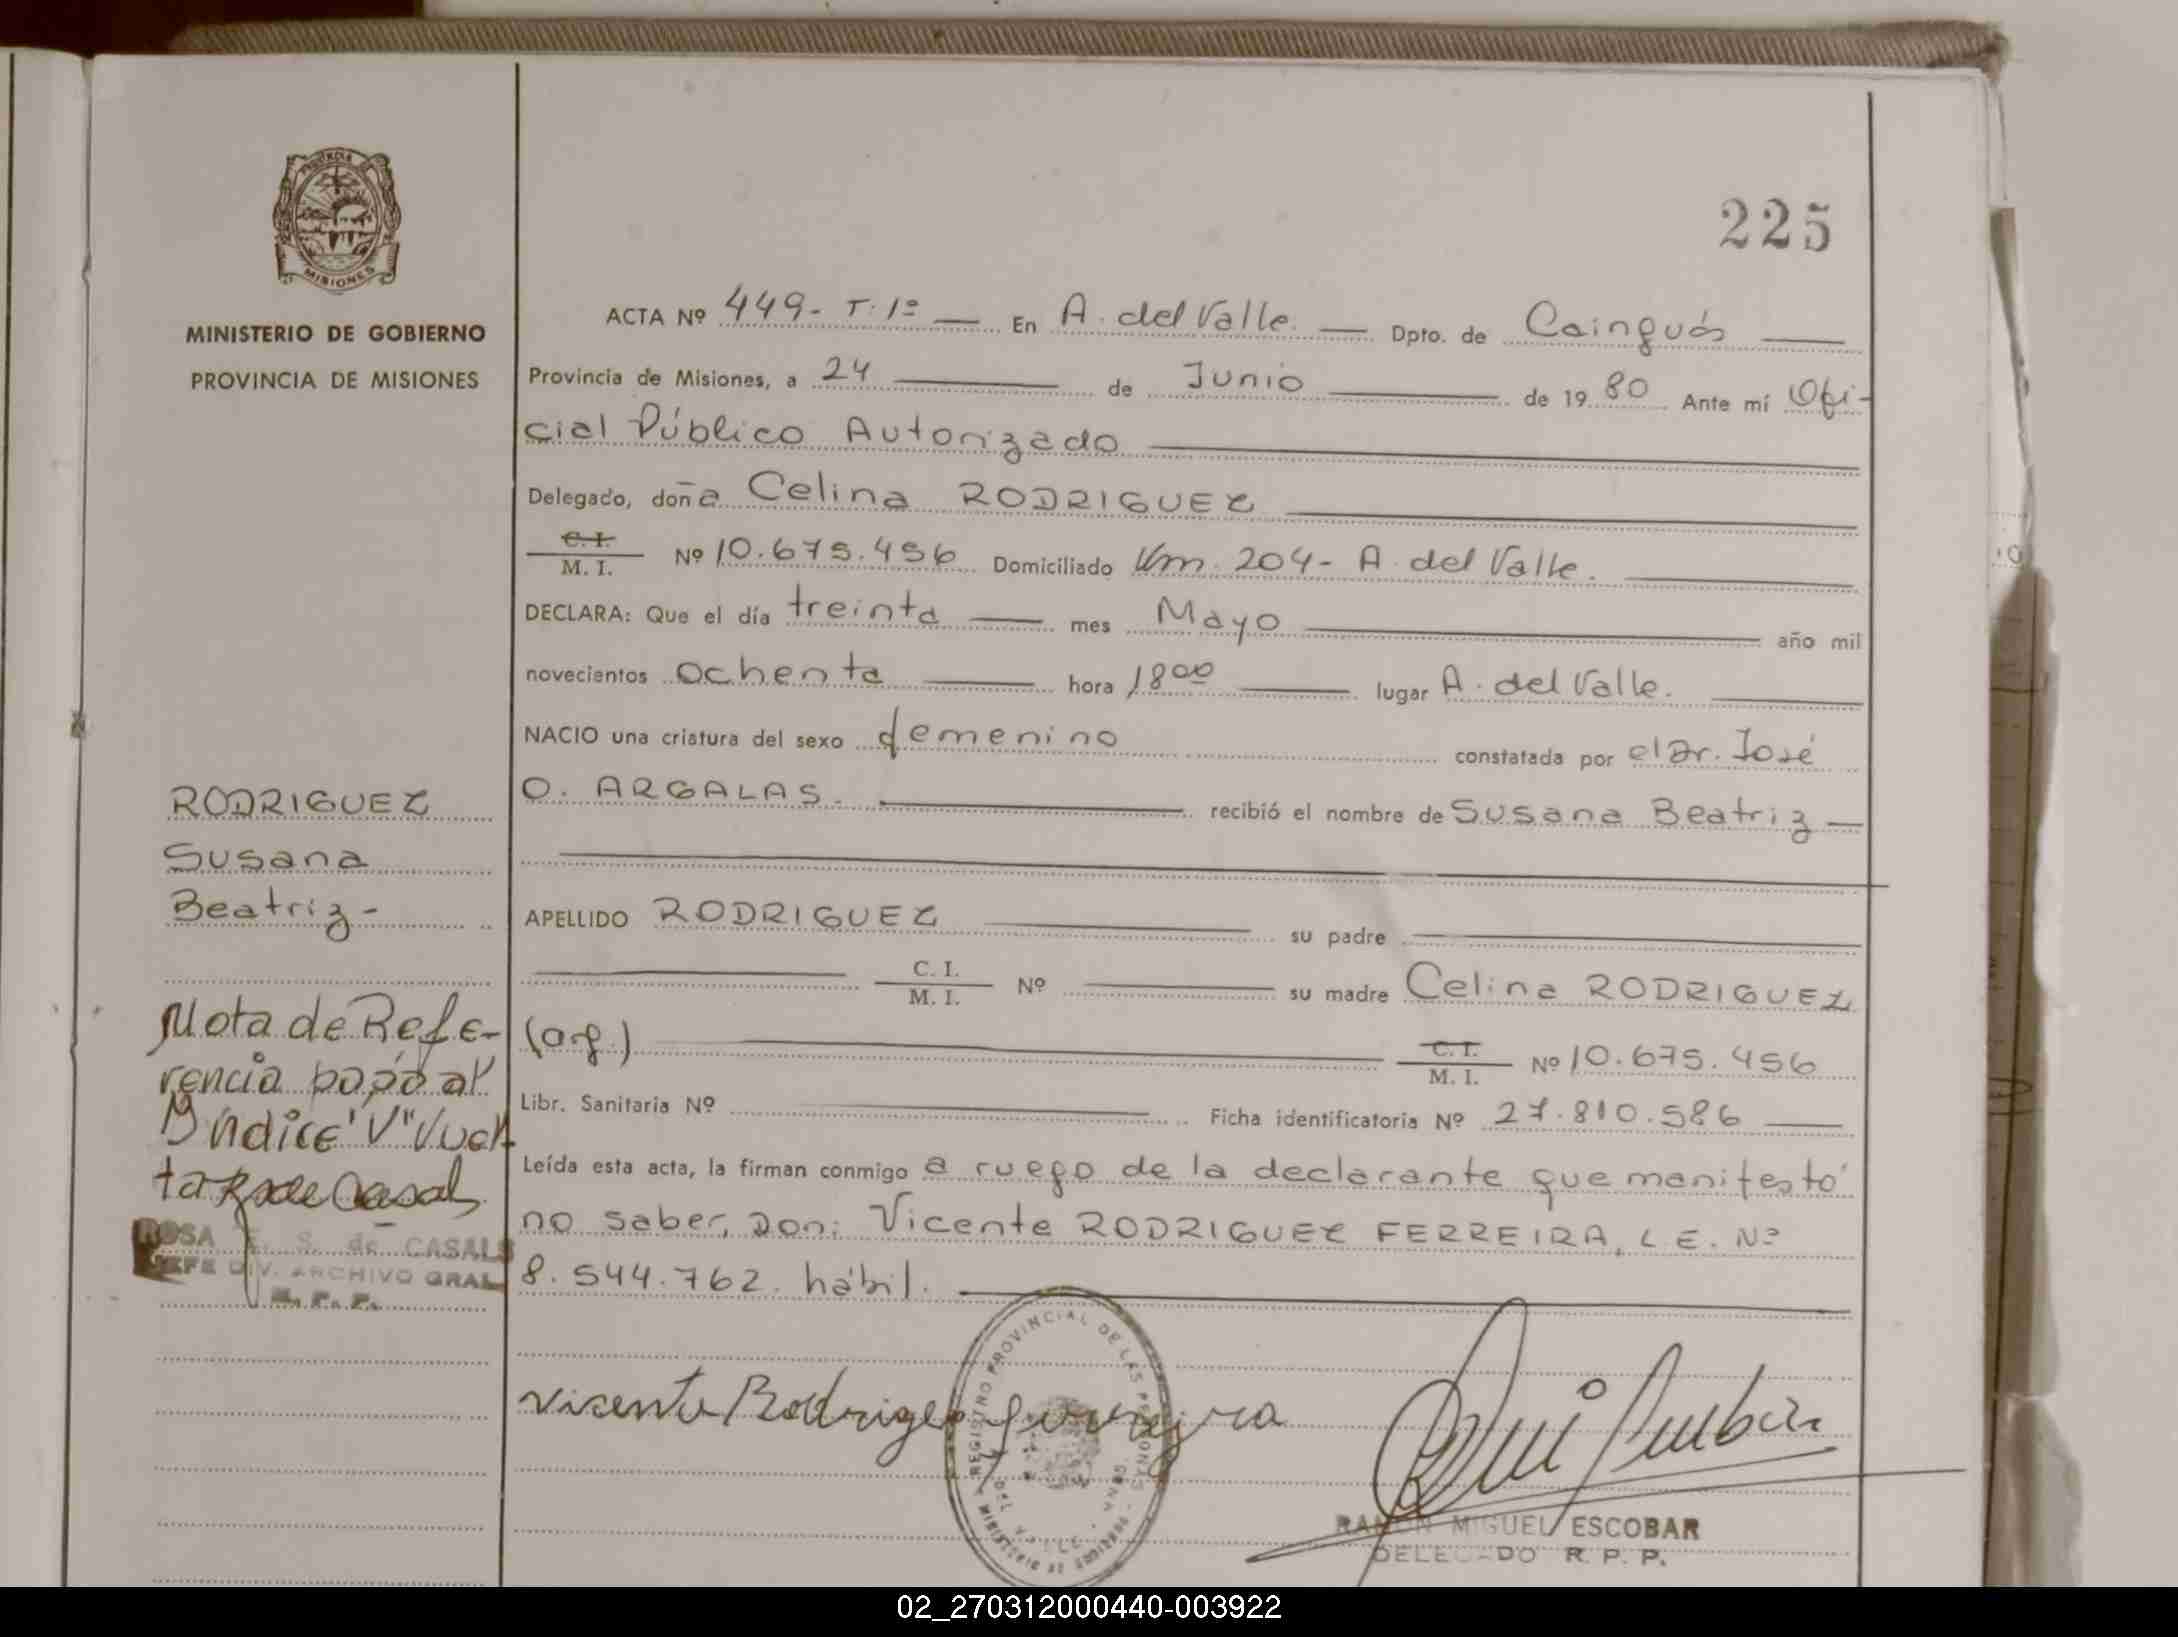 225
PROVINCIA DE
MISIONES
MINISTERIO DE GOBIERNO
PROVINCIA DE MISIONES
ACTA Nº 449- T. 1º — En A. del Valle. — Dpto. de Cainguás —
Provincia de Misiones, a 24 — de Junio — de 1980 Ante mí Ofi-
cial Público Autorizado —
Delegado, doña Celina RODRIGUEZ —
C. I.
M. I. Nº 10.675.456 Domiciliado Km. 204- A. del Valle. —
DECLARA: Que el día treinta — mes Mayo — año mil
novecientos ochenta — hora 18 00 — lugar A. del Valle. —
NACIO una criatura del sexo femenino constatada por el Dr. José
O. ARGALAS. — recibió el nombre de Susana Beatriz —
APELLIDO RODRIGUEZ — su padre —
— C. I.
M. I. Nº — su madre Celina RODRIGUEZ
(arg.) — C. I.
M. I. Nº 10.675.456
Libr. Sanitaria Nº — Ficha identificatoria Nº 27.810.586 —
Leída esta acta, la firman conmigo a ruego de la declarante que manifestó
no saber, Don: Vicente RODRIGUEZ FERREIRA, L E. Nº
8.544.762. hábil. —
RODRIGUEZ
Susana
Beatriz-
Nota de Refe-
rencia al
Indice "V" Vuel
ta
ROSA E. S. de CASALS
JEFE DIV. ARCHIVO GRAL
R. P. P.
REGISTRO PROVINCIAL DE LAS PERSONAS
DEL VALLE
Vicente Rodriguez
RAMON MIGUEL ESCOBAR
DELEGADO R. P. P.
02_270312000440-003922